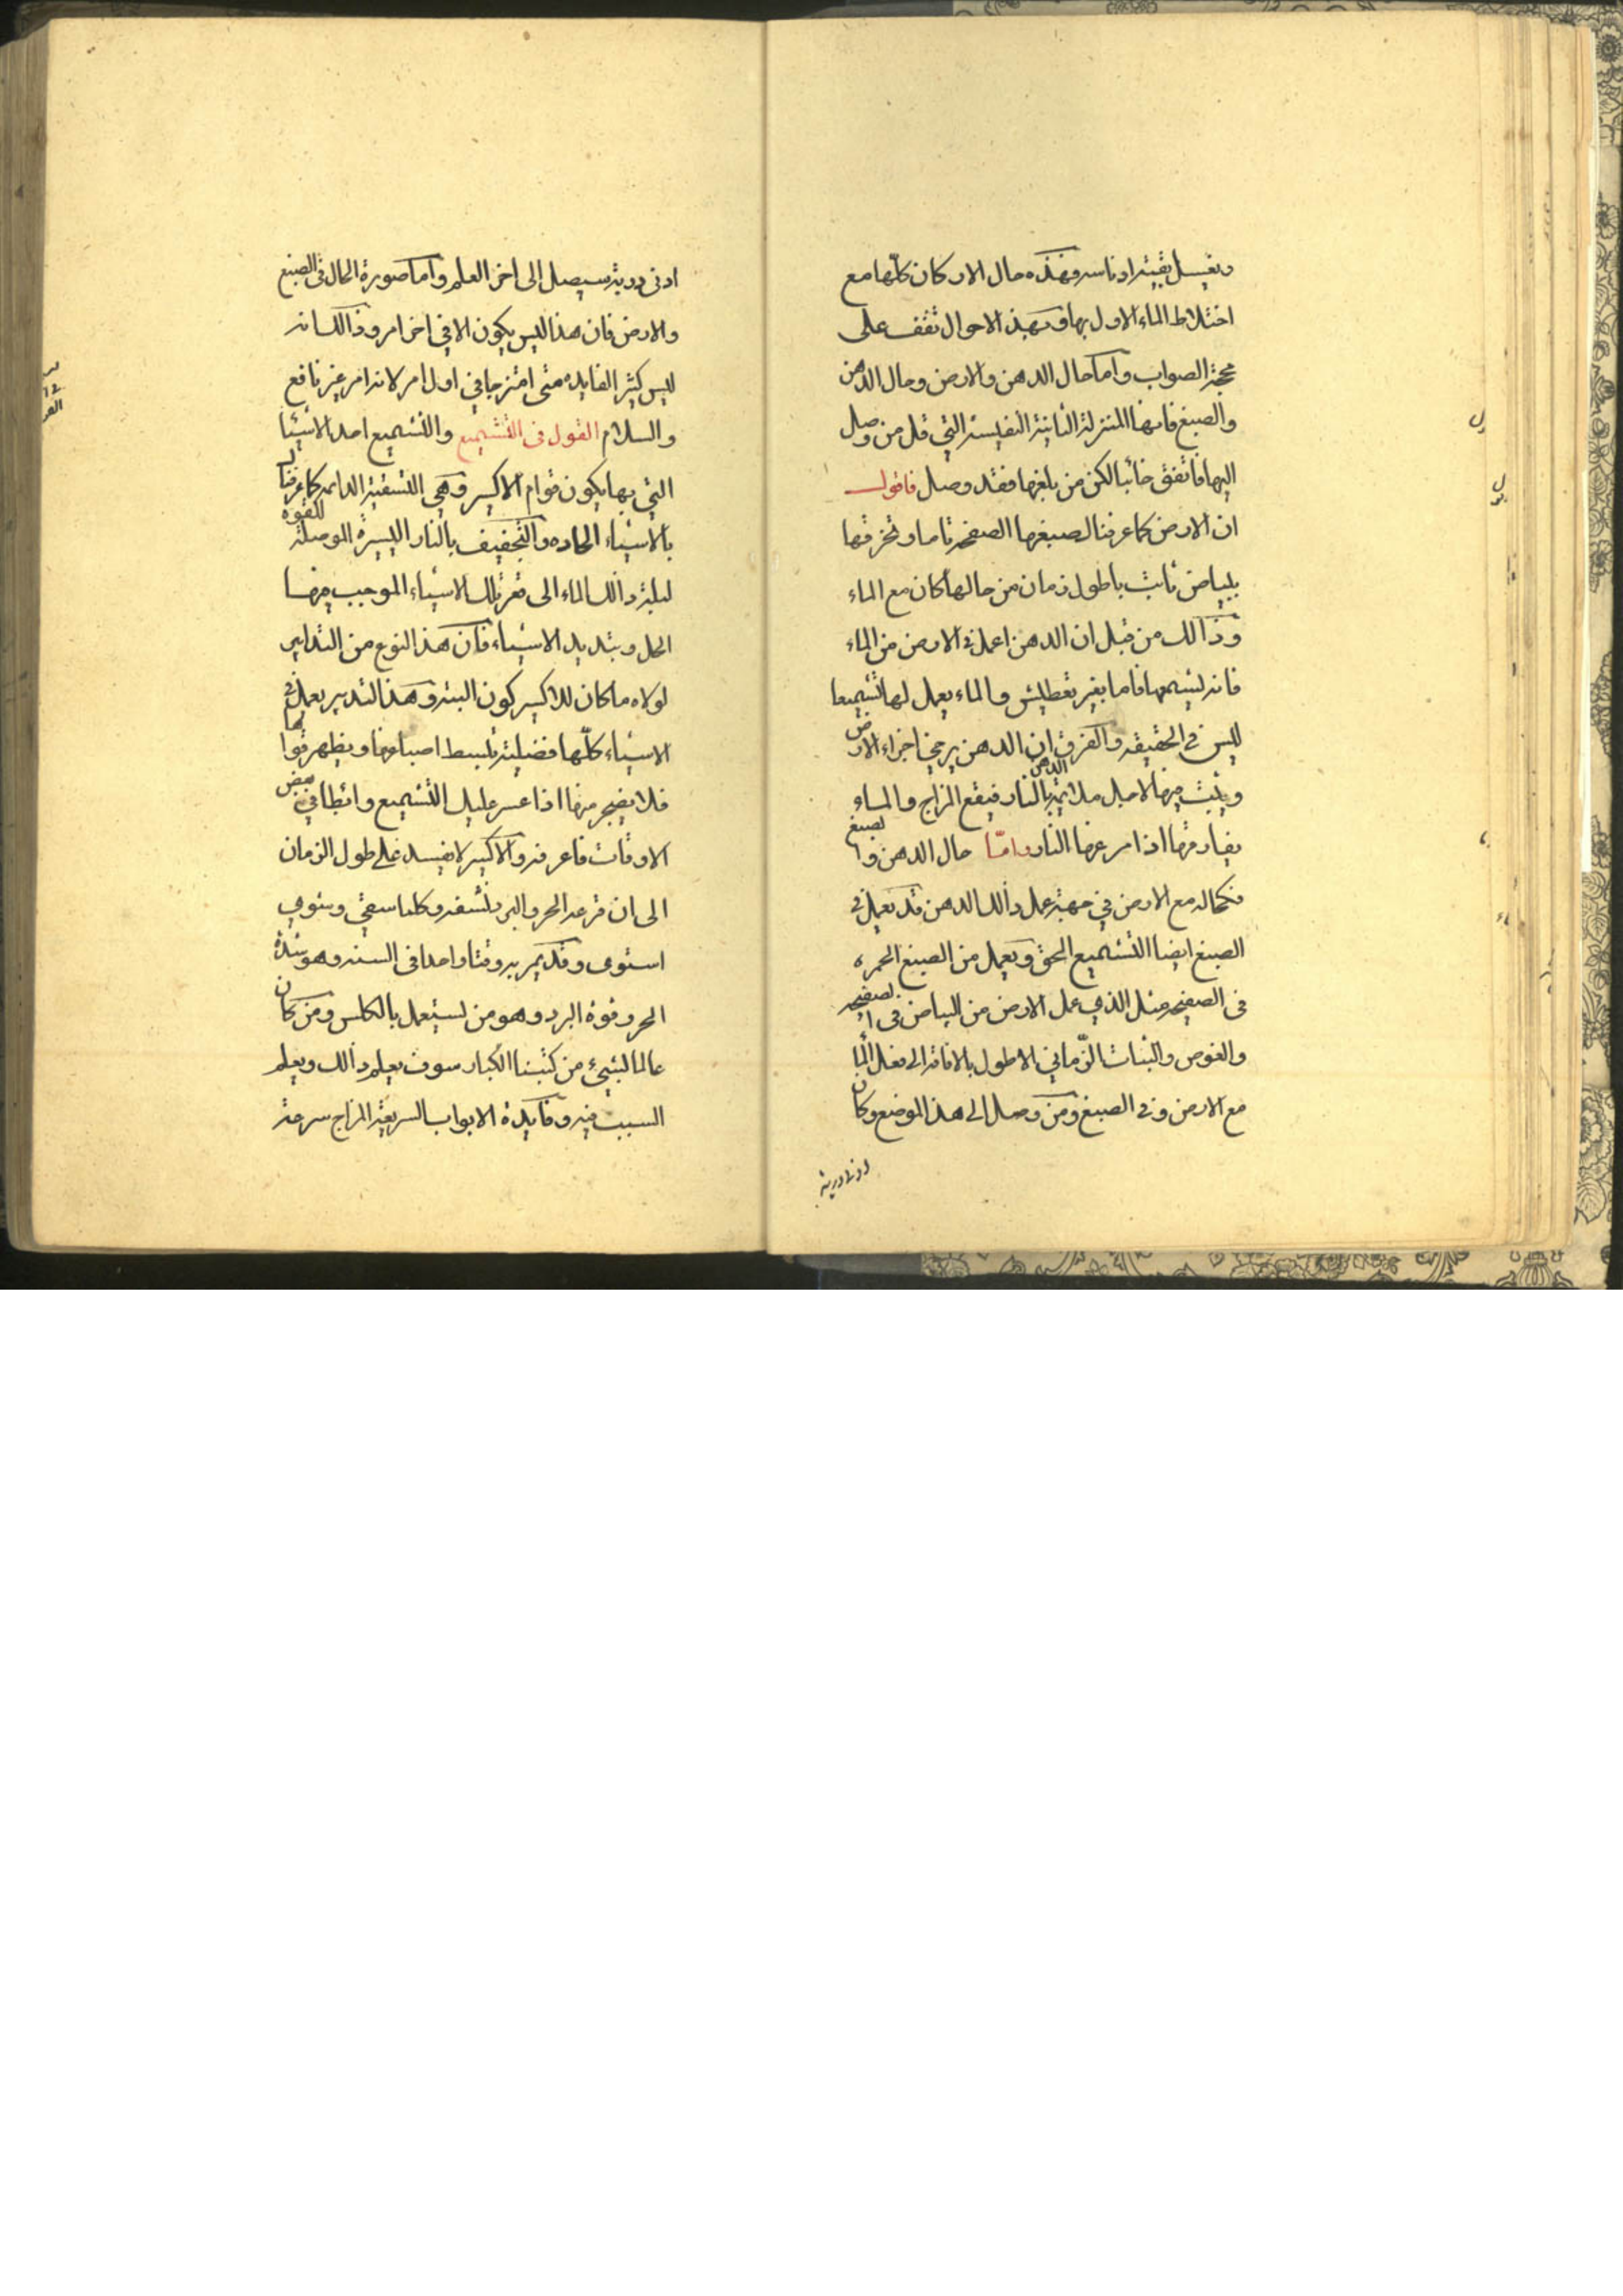 ويغسل بقية اوناسه وهذه حال الاركان كلها مع
اختلاط الماء الاول بها وبهذ الاحوال تقف على
محجة الصواب واما حال الدهن والارض وحال الدهن
والصبغ فانها المنزلة الثانية النفيسة التي قل من وصل
اليها فاتفق خائبا لكن من بلغها فقد وصل فاقول
ان الارض كما عرفنا لصبغها الصفحة تاما وتخرقها
بلباض ثابث باطول زمان من حالها كان مع الماء
وذالك من قبل ان الدهن اعمل في الارض من الماء
فانه يشمعها فاما بغير تعطيش والماء يعمل لها تشميعا
ليس في الحقيقه والفرق ان الدهن يرخي اجزاء الارض
ويثبث منها لاجل ملائمة الدهن بالنار فيقع المزاج والماء
يفارقها اذا مر عنها النار واما حال الدهن والصبغ
فكحاله مع الارض في جهة عمل ذالك الدهن قد يعمل في
الصبغ ايضا التشميع الحق ويعمل من الصبغ الحمره
في الصفيحه مثل الذي عمل الارض من البياض في الصفيحه
والغوص والثبات الزماني الاطول بالاضافة الى فعل الماء
مع الارض وفي الصبغ ومن وصل الى هذا الموضع وكان
ادنى دربة
ادنى دربة سيصل الى اخر العلم واما صورة الحال في الصبغ
والارض فان هذا ليس يكون الا في اخر امر وذالك انه
ليس كثير الفايده متى امتزجا في اول امر لانه امر غير نافع
والسلام القول في التشميع والتشميع احد الاشيا
التي بها يكون قوام الاكسير وهي التسقية الدايمه كما عرفنا
بالاشياء الحاده والتجفيف بالنار اليسيرة الموصلة للقوه
لبلة ذالك الماء الى قعر تلك الاشياء الموجب منها
الحل وبتديد الاشياء فان هذ النوع من التدابير
لولاه ما كان للاكسير كون البته وهذ التدبير يعمل في
الاشياء كلها فضيلة تبسط اصباغها ويظهر قواها
فلا يضجر منها اذا عسر عليك التشميع وابطا في بعض
الاوقات فاعرفه والاكسير لا يفسد على طول الزمان
الى ان قرعه الحر والبرد نشفه وكلما سقي وشوي
استوى وقد يمر به وقتا واحدا في السنه وهو شدة
الحر وقوة البرد وهو من يستعمل بالكاس ومن كان
عالما لشيء من كتبنا الكبار سوف يعلم ذالك ويعلم
السبب فيه وفايدة الابواب السريعة المزاج سرعة